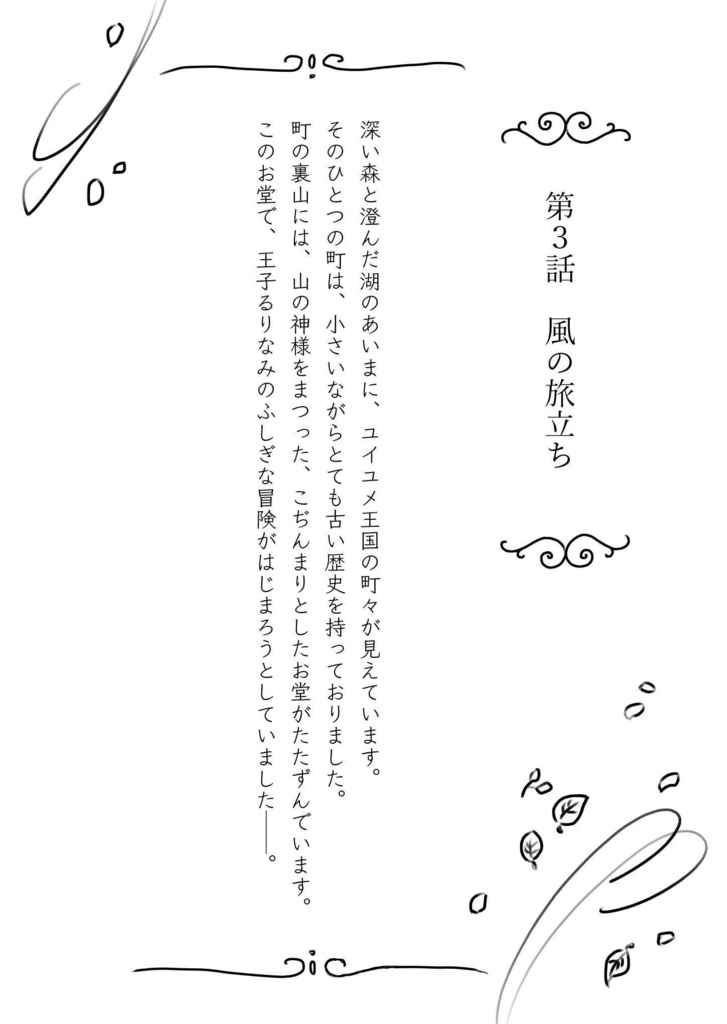 第3話　風の旅立ち
深い森と澄んだ湖のあいまに、ユイユメ王国の町々が見えています。
そのひとつの町は、小さいながらとても古い歴史を持っておりました。
町の裏山には、山の神様をまつった、こぢんまりとしたお堂がたたずんでいます。
このお堂で、王子るりなみのふしぎな冒険がはじまろうとしていました――。